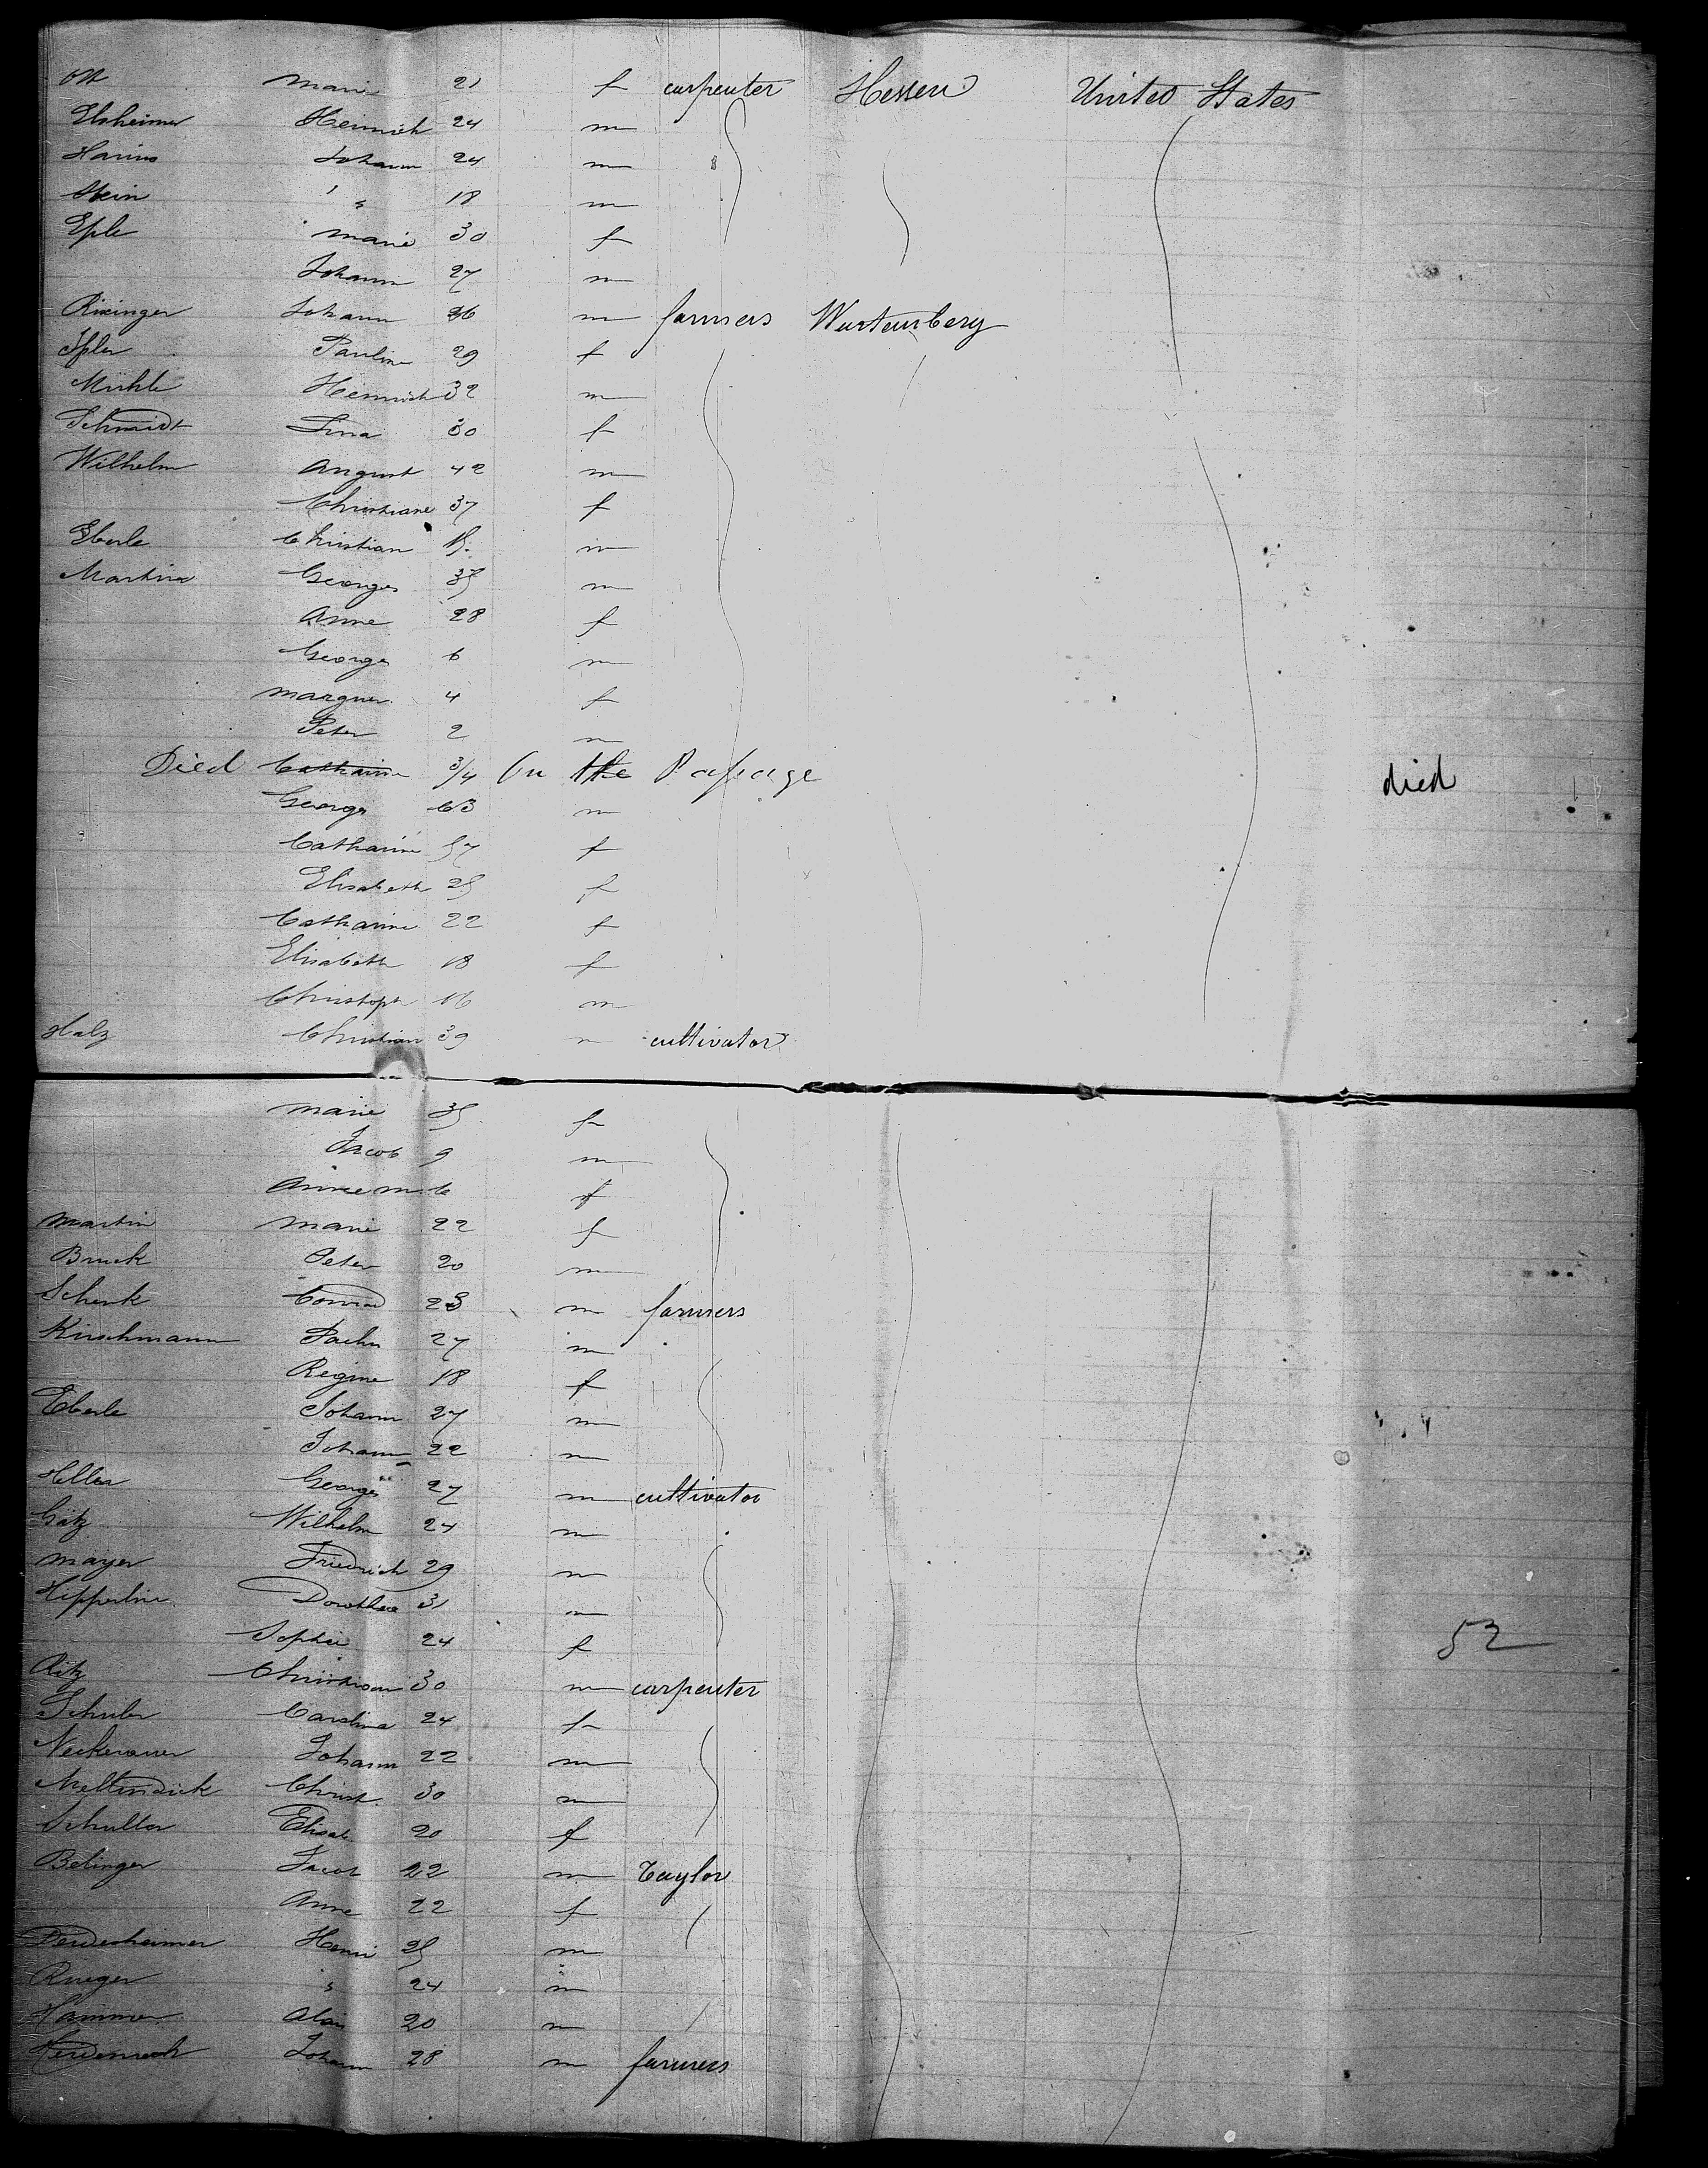 Ott Marie 21 f carpenter Hessen United States
Elsheimer Heinrich 24 m
Johann 24 m
Stein " 18 m
Eple Marie 30 f
Johann 27 m
Rixinger Johann 26 m farmers Wurtemberg
Pauline 29 f
Mühle Heinrich 32 m
Schmidt Lina 30 f
Wilhelm August 42 m
Christiane 37 f
Eberle Christian m
Martin Georges 35 m
Anne 28 f
Georges 6 m
Marguer. 4 f
Peter 2 m
Died Catharine 3/4 On the Passage died
Georges 63 m
Catharine 57 f
Elisabeth 25 f
Catharine 22 f
Elisabeth 18 f
Christoph 16 m
Halz Christian 39 m cultivator
Marie 35 f
Jacob 9 m
Anne m. 6 f
Martin Marie 22 f
Bruck Peter 20 m
Schenk Conrad 23 m farmers
Kirschmann 27 m
Regine 18 f
Eberle Johann 27 m
Johann 22 m
Heller Georges 27 m cultivator
Götz Wilhelm 24 m
Mayer Friedrich 29 m
Dorothea 31 m
Sophie 24 f 52
Ritz Christian 30 m carpenter
Schuler Carolina 24 f
Neckerauer Johann 22 m
Christ. 30 m
Schuller Elisab. 20 f
Belinger Jacob 22 m Taylor
Anne 22 f
Henri 25 m
Rueger " 24 m
Hammer 20 m
Johann 28 m farmers